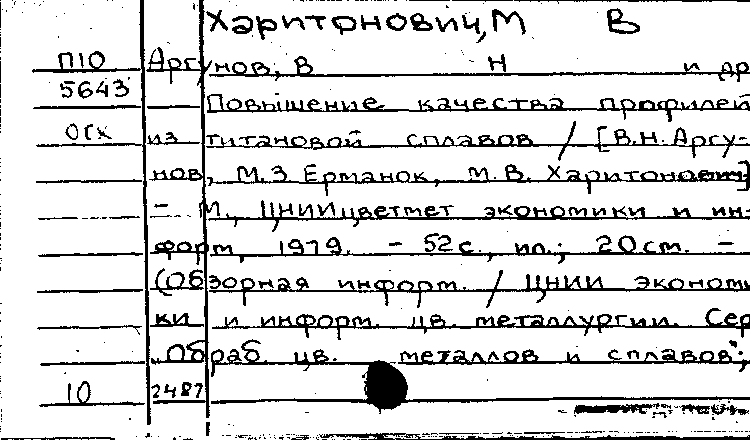 Харитонович, М В
П10 Аргунов, В Н и др
5643 Повышение качества профилей
огх из титановой сплавов / [В.Н. Аргу-
нов, М.З Ерманок, М.В. Харитонович]
- М., ЦНИИцветмет экономики и ин-
форм, 1979. - 52с., ил.; 20см. -
(Обзорная информ. / ЦНИИ экономи
ки и информ. цв. металлургии. Сер
„Обраб. цв. металлов и сплавов";
10 2487